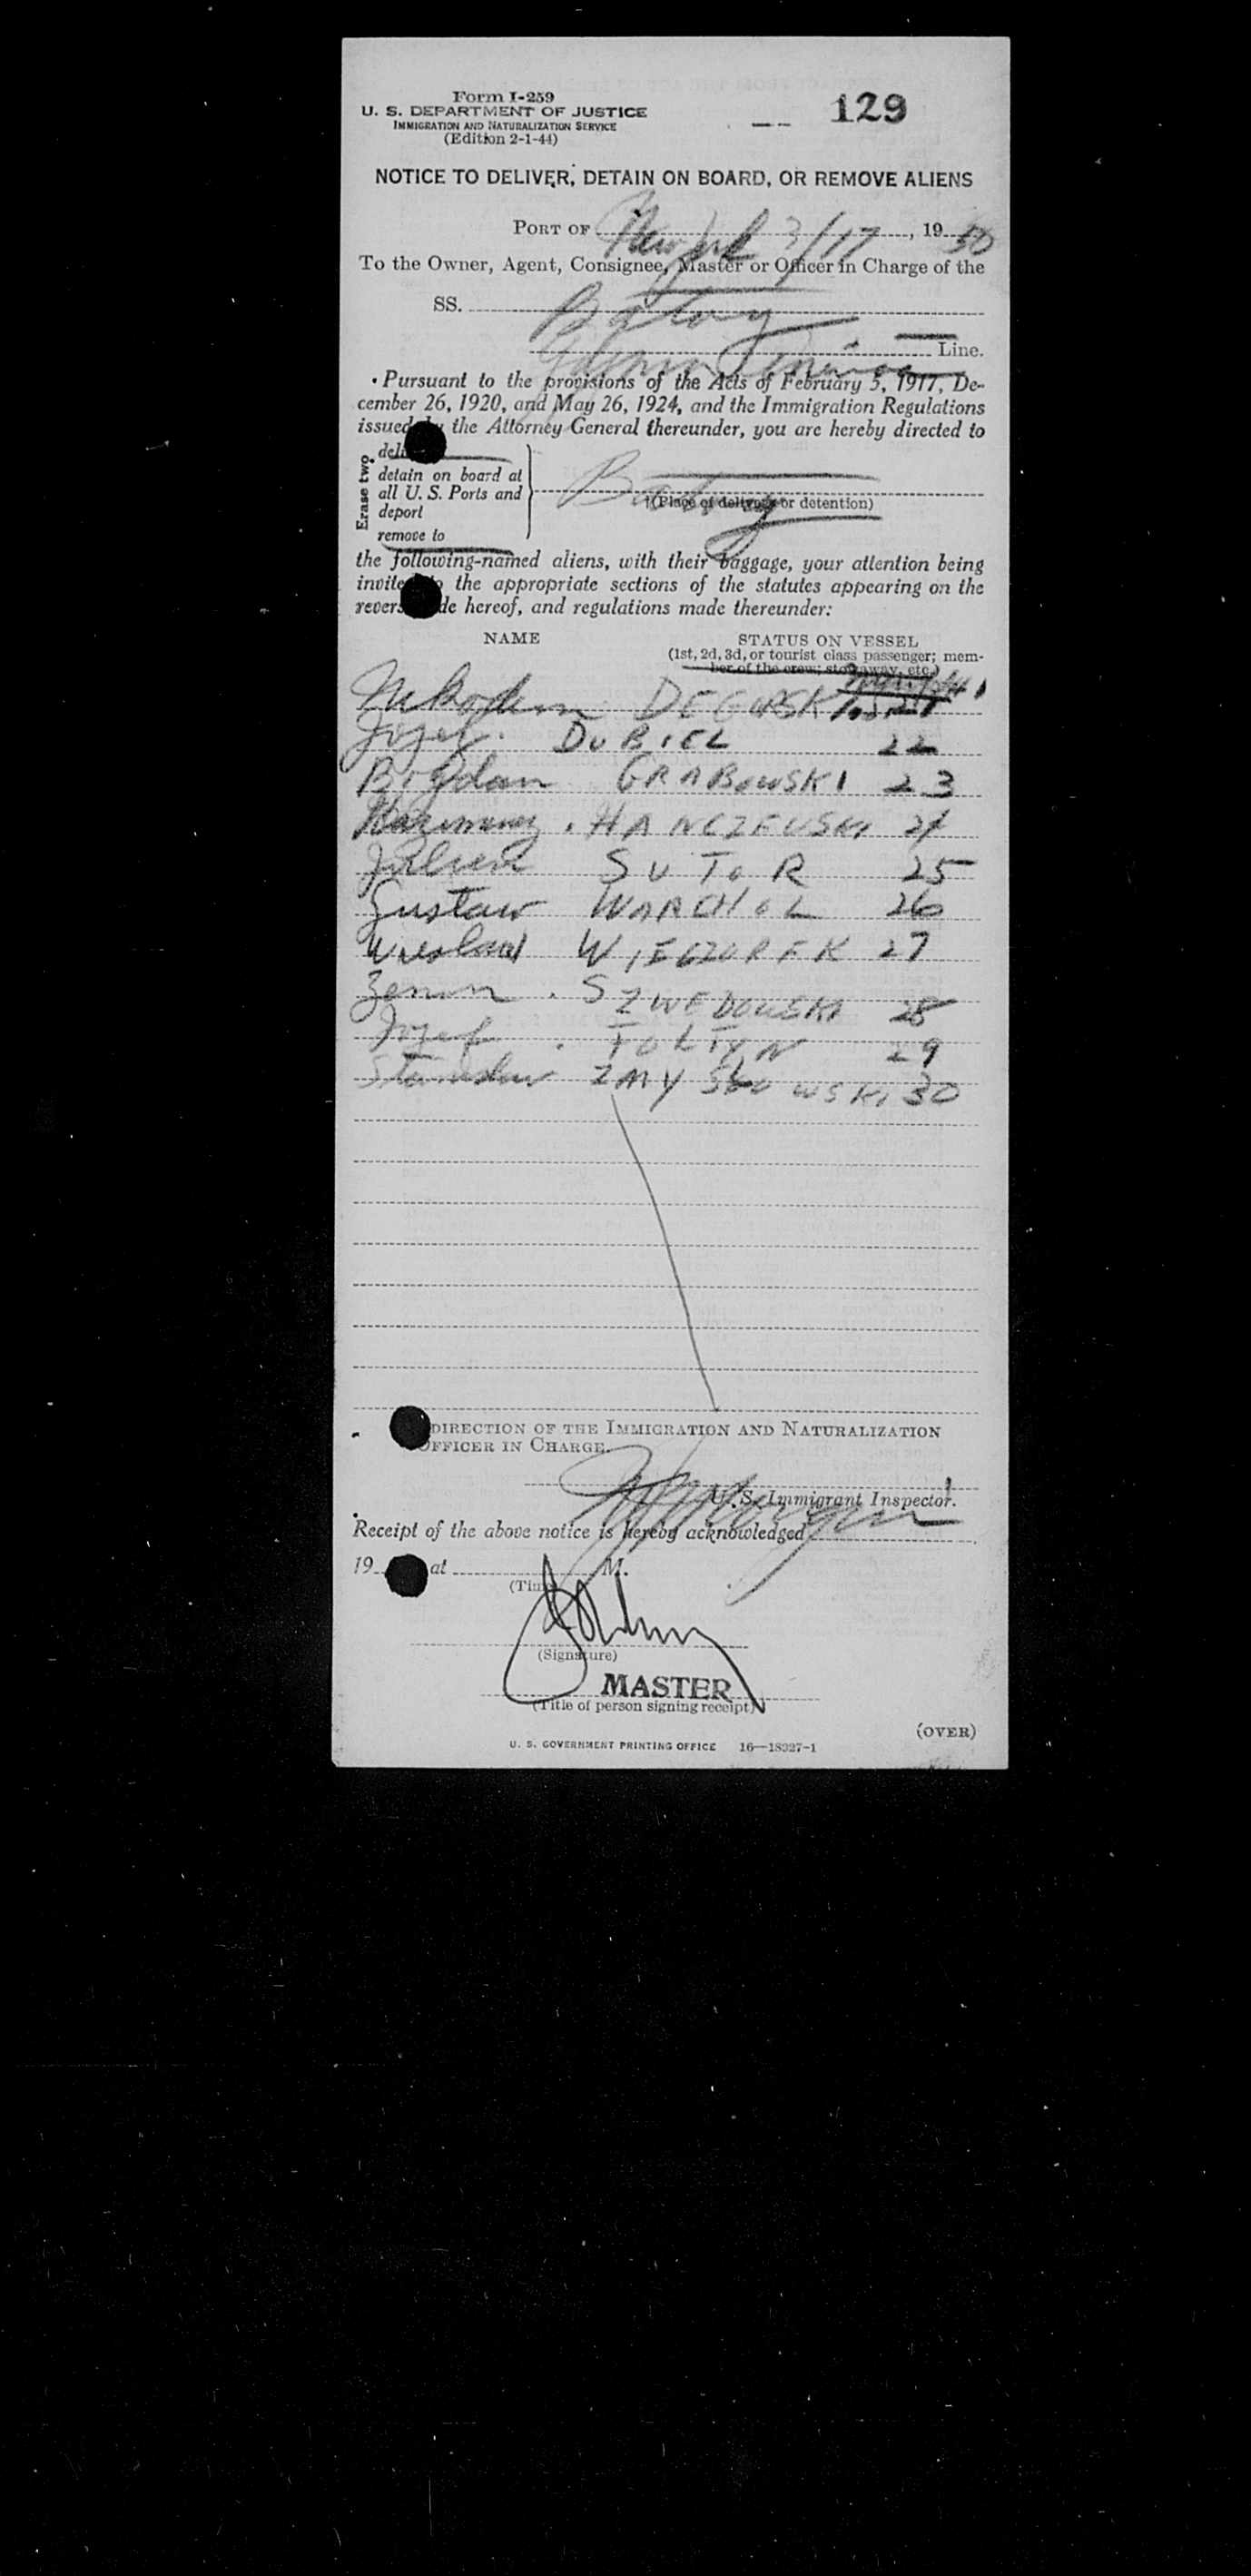 Form I-259
U. S. DEPARTMENT OF JUSTICE
IMMIGRATION AND NATURALIZATION SERVICE
(Edition 2-1-44)
129
NOTICE TO DELIVER, DETAIN ON BOARD, OR REMOVE ALIENS
PORT OF New York 3/17, 1950
To the Owner, Agent, Consignee, Master or Officer in Charge of the
SS. Batory
Gdynia America Line.
Pursuant to the provisions of the Acts of February 5, 1917, De-
cember 26, 1920, and May 26, 1924, and the Immigration Regulations
issued by the Attorney General thereunder, you are hereby directed to
Erase two
detain on board at
all U. S. Ports and
deport
remove to
Batory
(Place of delivery or detention)
the following-named aliens, with their baggage, your attention being
invited to the appropriate sections of the statutes appearing on the
reverse side hereof, and regulations made thereunder:
NAME STATUS ON VESSEL
(1st, 2d, 3d, or tourist class passenger; mem-
ber of the crew; stowaway, etc.)
Nikodem DEGORSKI 21
Jozef DUBIEL 22
Bogdan GRABOWSKI 23
Kazimierz HANCZEWSKI 24
Julian SUTOR 25
Gustaw WARCHOL 26
Wieslaw WIECZOREK 27
Zenon SZWEDOWSKI 28
Jozef TOLTYN 29
Stanislaw ZMYSLOWSKI 30
DIRECTION OF THE IMMIGRATION AND NATURALIZATION
OFFICER IN CHARGE.
U. S. Immigrant Inspector.
Receipt of the above notice is hereby acknowledged
19 at M.
(Time)
(Signature)
MASTER
(Title of person signing receipt)
(OVER)
U. S. GOVERNMENT PRINTING OFFICE 16—18327-1